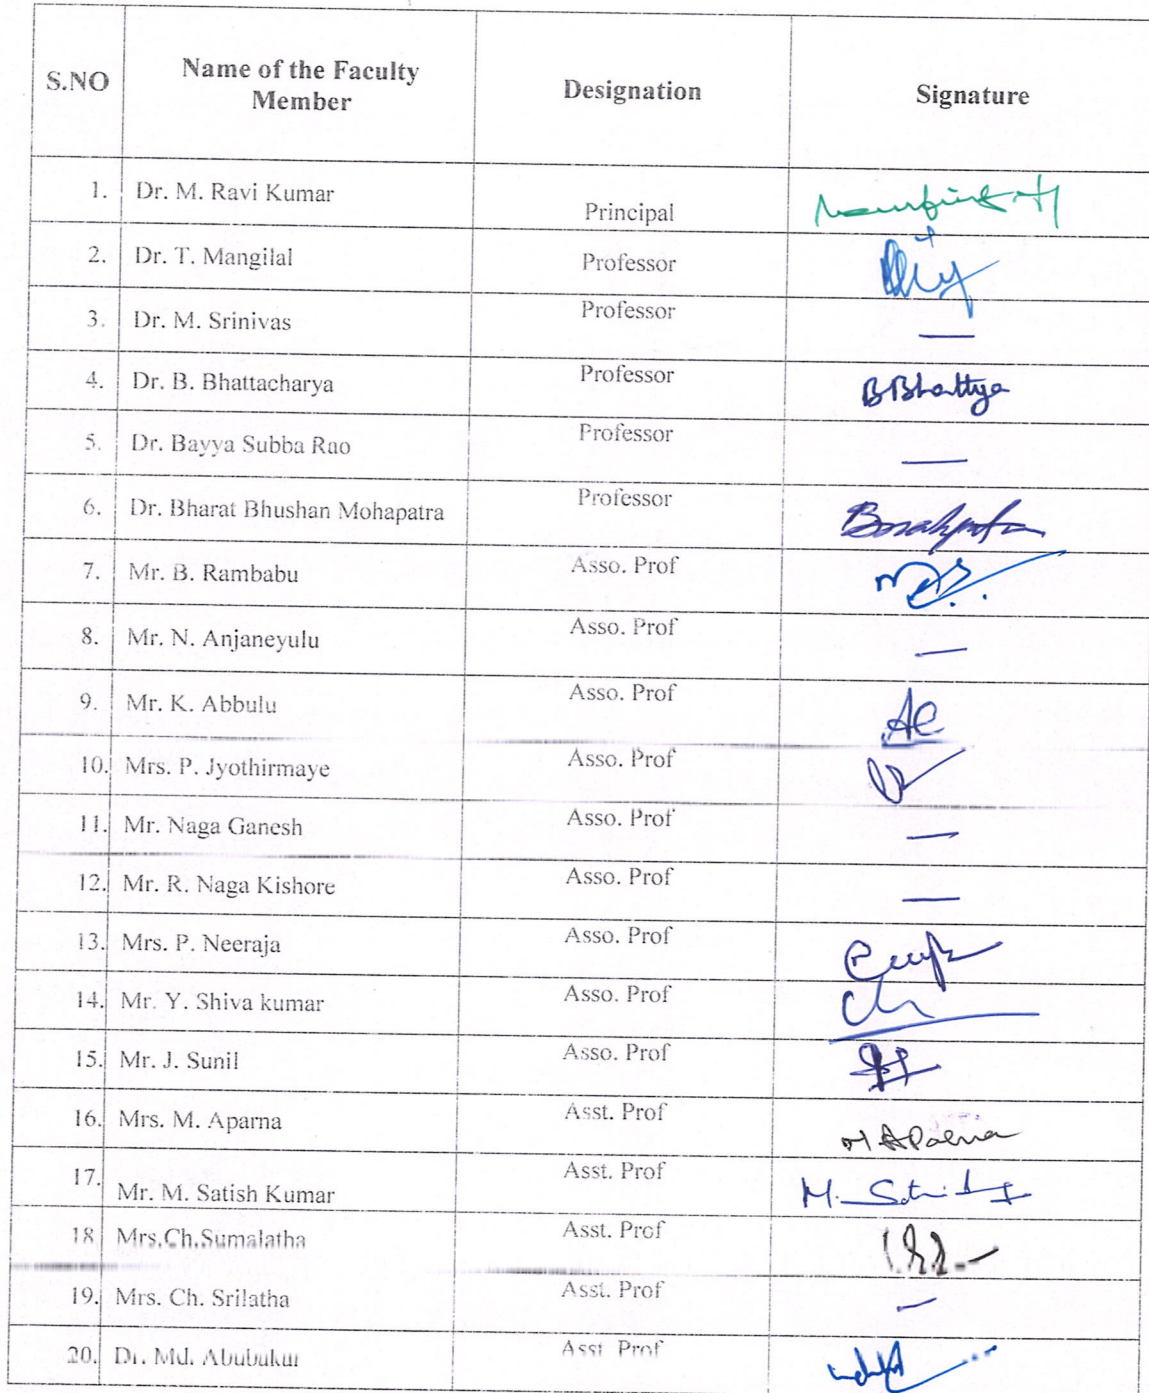 S.NO Name of the Faculty Member Designation Signature
1. Dr. M. Ravi Kumar Principal
2. Dr. T. Mangilal Professor
3. Dr. M. Srinivas Professor —
4. Dr. B. Bhattacharya Professor
5. Dr. Bayya Subba Rao Professor —
6. Dr. Bharat Bhushan Mohapatra Professor
7. Mr. B. Rambabu Asso. Prof
8. Mr. N. Anjaneyulu Asso. Prof —
9. Mr. K. Abbulu Asso. Prof
10. Mrs. P. Jyothirmaye Asso. Prof
11. Mr. Naga Ganesh Asso. Prof —
12. Mr. R. Naga Kishore Asso. Prof —
13. Mrs. P. Neeraja Asso. Prof
14. Mr. Y. Shiva kumar Asso. Prof
15. Mr. J. Sunil Asso. Prof
16. Mrs. M. Aparna Asst. Prof
17. Mr. M. Satish Kumar Asst. Prof
18 Mrs.Ch.Sumalatha Asst. Prof
19. Mrs. Ch. Srilatha Asst. Prof —
20. Dr. Md. Abubukur Asst Prof